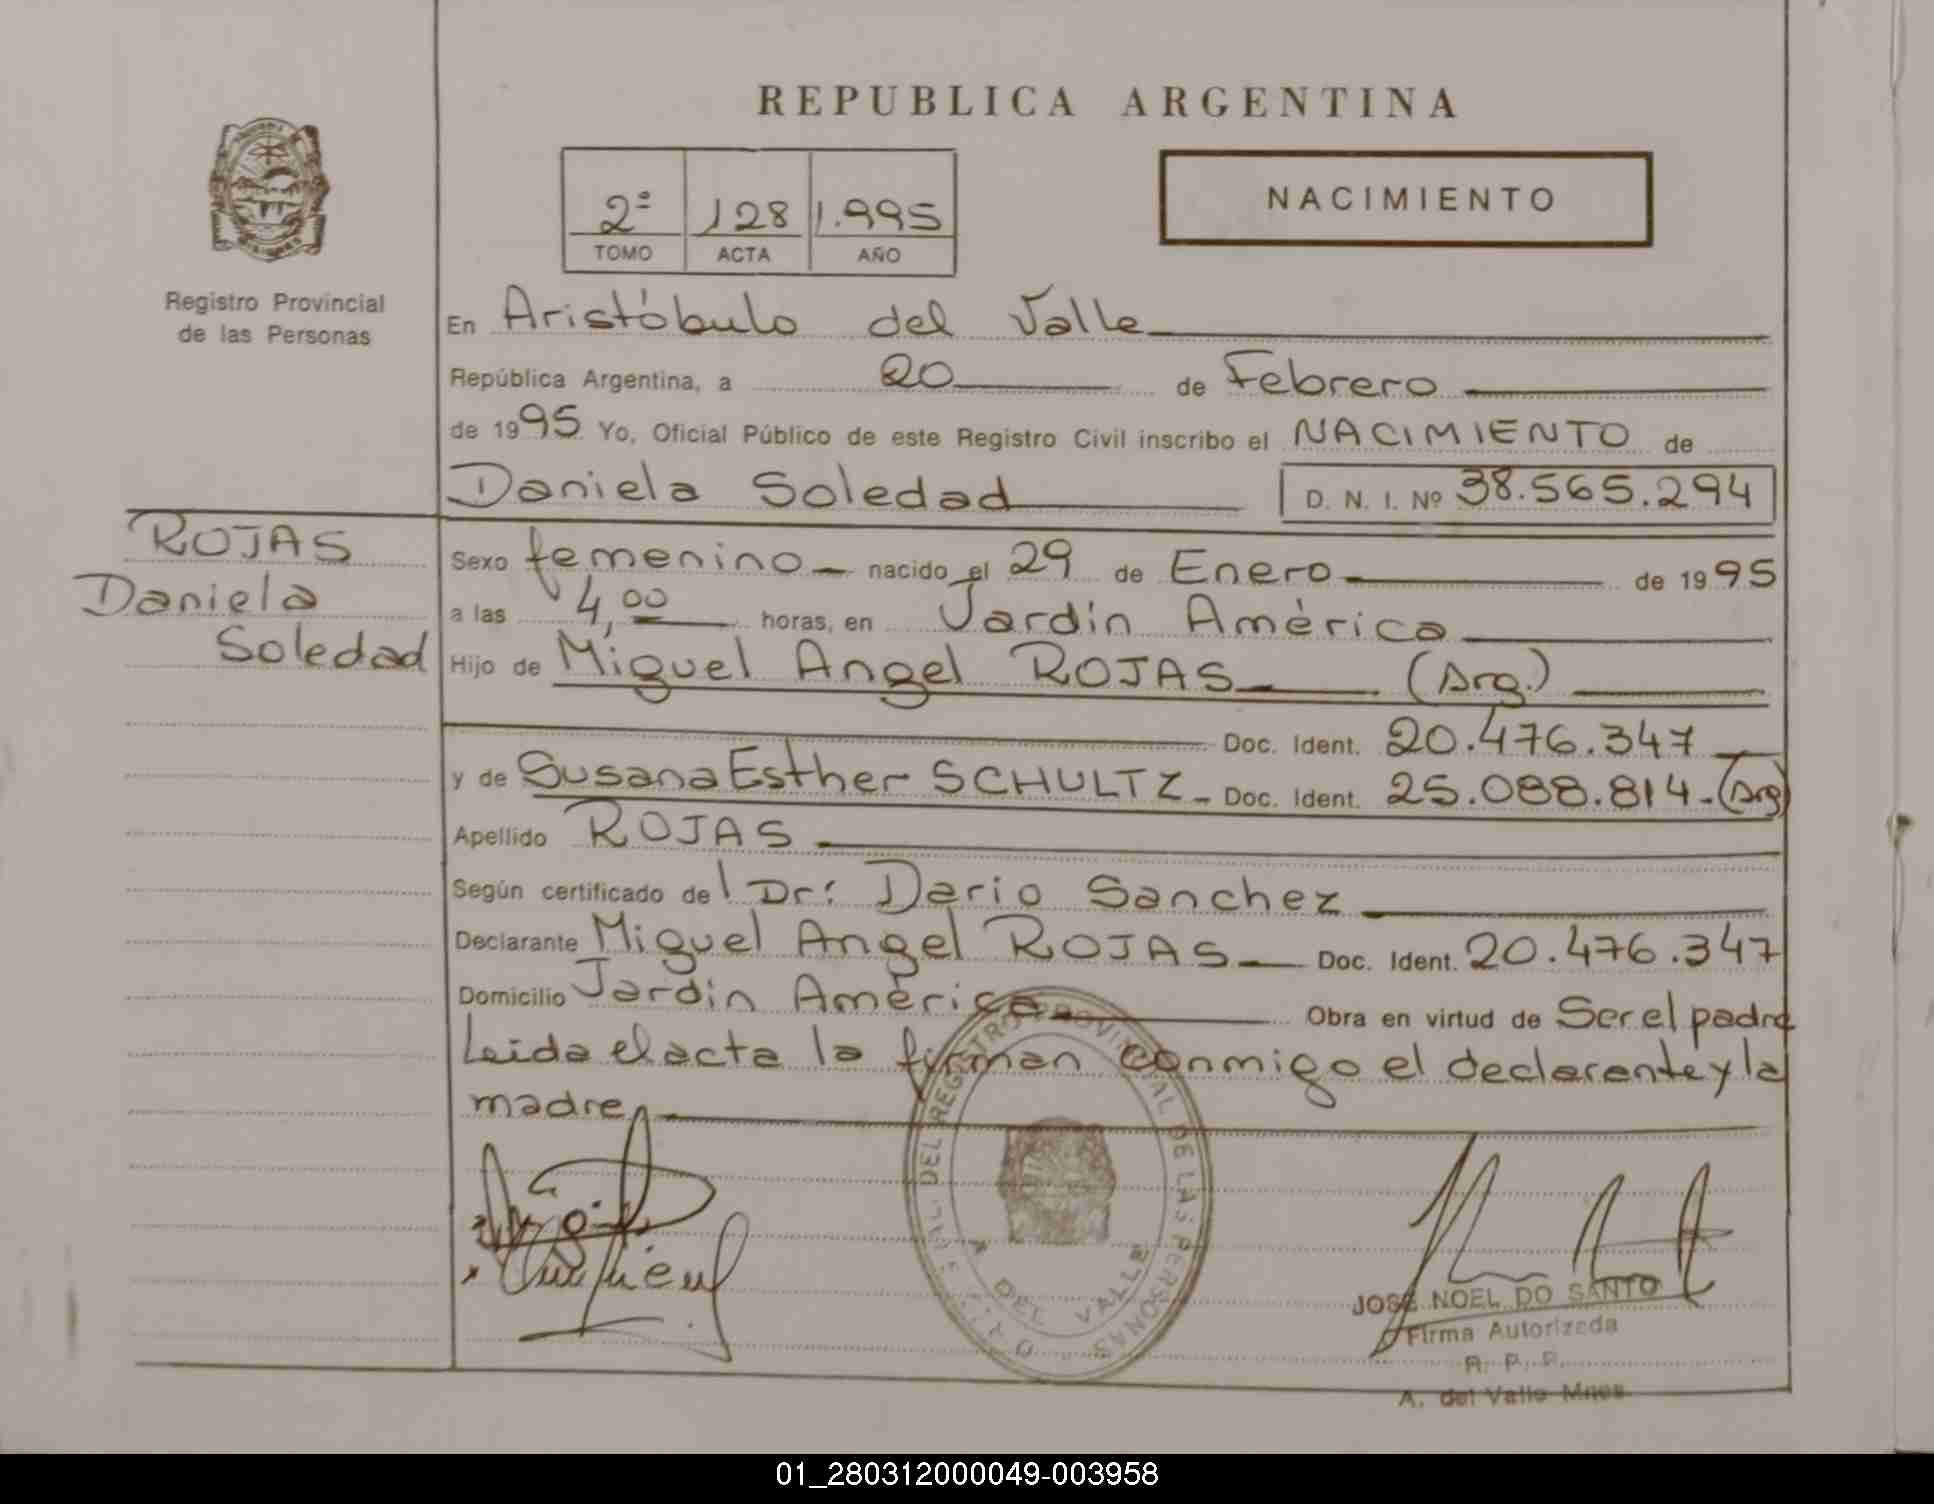 REPUBLICA ARGENTINA
NACIMIENTO
2º 128 1.995
TOMO ACTA AÑO
Registro Provincial
de las Personas
En Aristóbulo del Valle
República Argentina, a 20 de Febrero
de 1995 Yo, Oficial Público de este Registro Civil inscribo el NACIMIENTO de
Daniela Soledad D. N. I. Nº 38.565.294
ROJAS
Daniela
Soledad
Sexo femenino nacido el 29 de Enero de 1995
a las 4,00 horas, en Jardín América
Hijo de Miguel Angel ROJAS (Arg.)
Doc. Ident. 20.476.347
y de Susana Esther SCHULTZ Doc. Ident. 25.088.814-(Arg)
Apellido ROJAS
Según certificado del Dr: Dario Sanchez
Declarante Miguel Angel ROJAS Doc. Ident. 20.476.347
Domicilio Jardín América Obra en virtud de Ser el padre
Leida el acta la firman conmigo el declarante y la
madre
DEL REGISTRO PROVINCIAL DE LAS PERSONAS
DEL VALLE
JOSE NOEL DO SANTO
Firma Autorizada
R. P. P.
A. del Valle Mnes
01_280312000049-003958